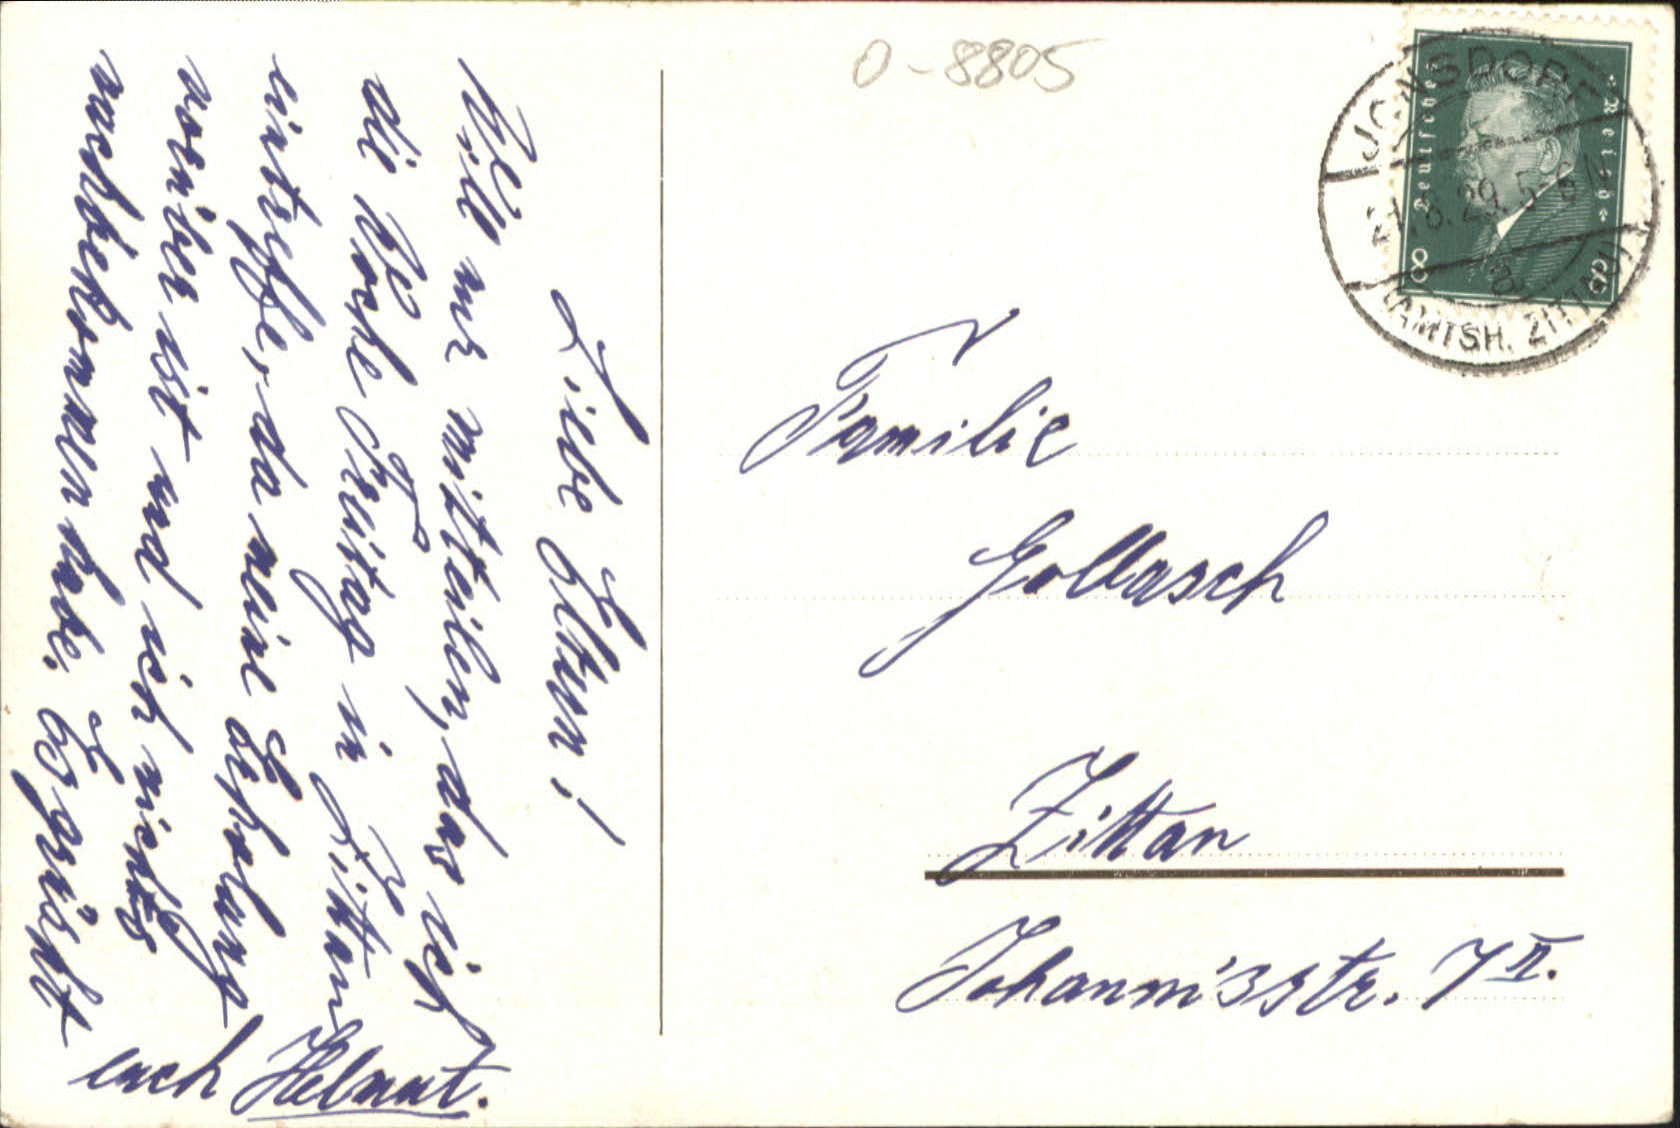 Liebe Eltern!
Will euch mitteilen, das ich
die Woche Freitag in Zittau
eintreffe, da meine Erholung
vorüber ist und ich nichts
nachbekommen habe. Es grüßt
euch Helmut.
O-8805
Deutsches Reich
8 8
JONSDORF
21.8.29. 5-6 N
(AMTSH. ZITTAU)
Familie
Gollasch
Zittau
Johannisstr. 7 II.